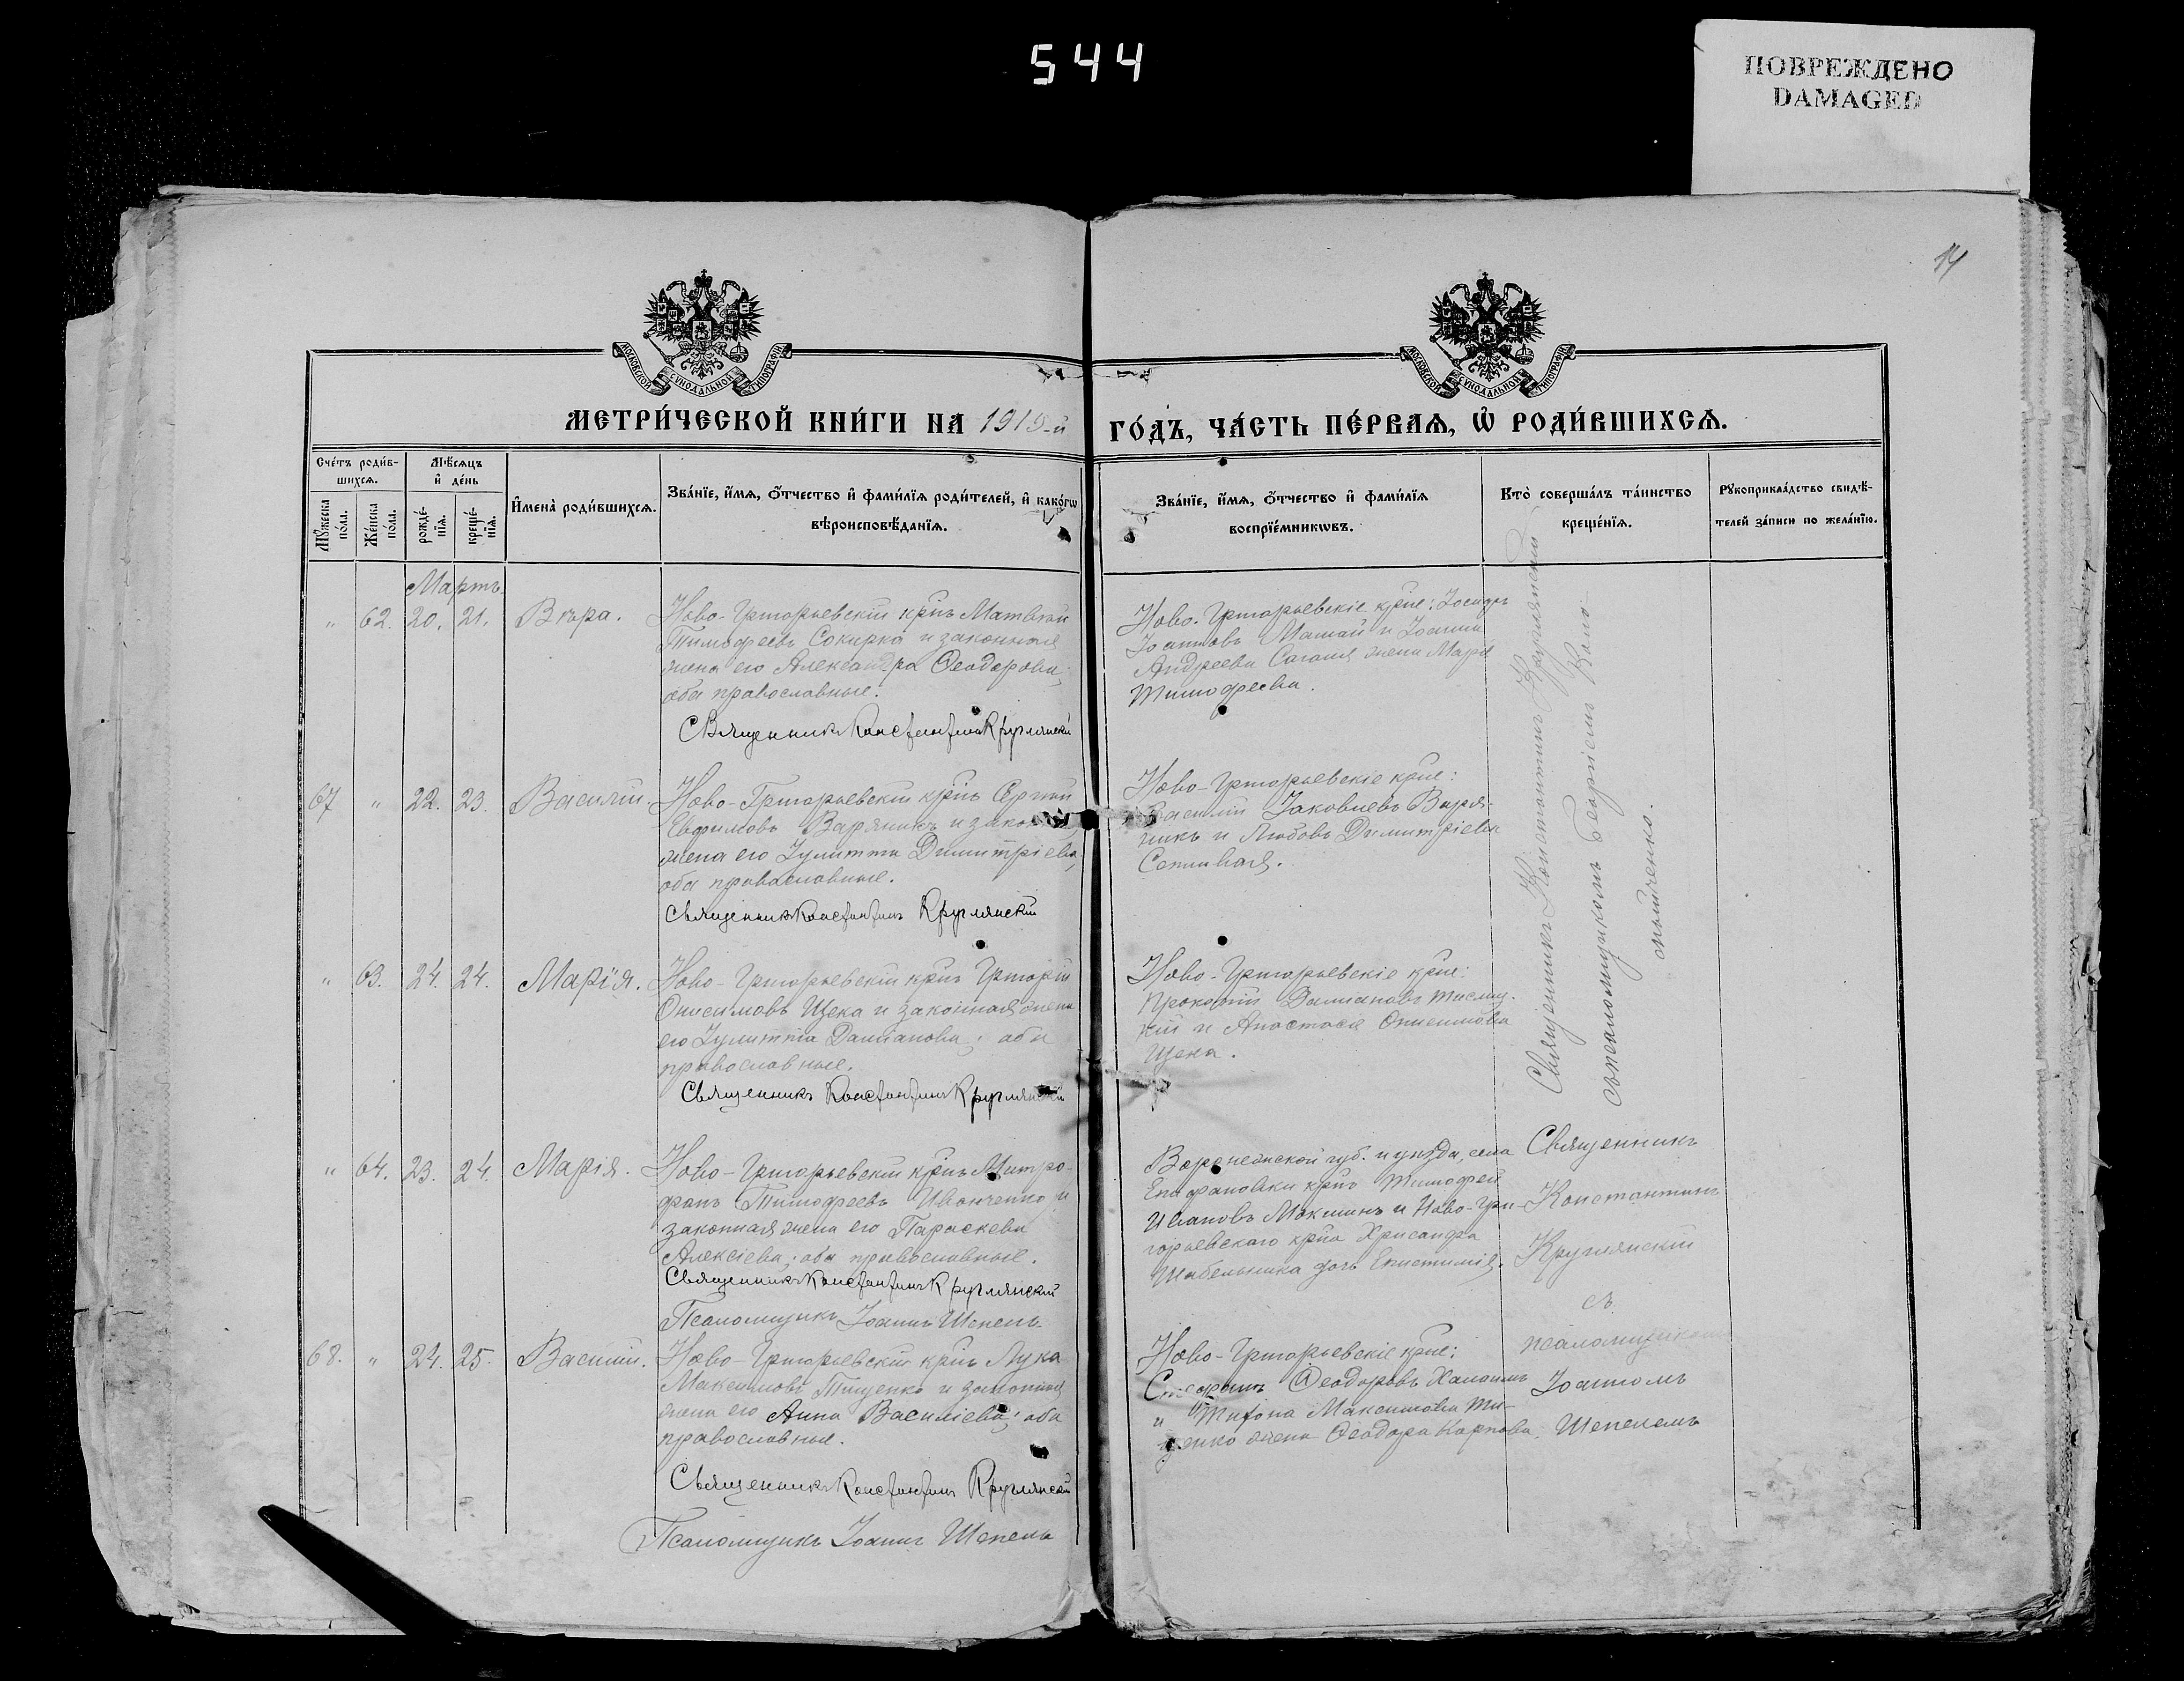 544
ПОВРЕЖДЕНО
DAMAGED
14
МОСКОВСКОЙ СѴНОДАЛЬНОЙ ТИПОГРАФІИ
МОСКОВСКОЙ СѴНОДАЛЬНОЙ ТИПОГРАФІИ
МЕТРИ́ЧЕСКОЙ КНИ́ГИ НА 1915-й
ГО́ДЪ, ЧА́СТЬ ПЕ́РВАѦ, Ѽ РОДИ́ВШИХСѦ.
Сче́тъ роди́в-
шихсѧ.
Мꙋжеска
по́ла.
Же́нска
по́ла.
Мѣ́сѧцъ
и҆ де́нь
рожде́-
нїѧ.
креще́-
нїѧ.
И҆мена̀ роди́вшихсѧ.
Зва́нїе, и҆́мѧ, ѻ҆́тчество и҆ фами́лїѧ роди́телей, и҆ како́гѡ
вѣроисповѣ́данїѧ.
Зва́нїе, и҆́мѧ, ѻ҆́тчество и҆ фами́лїѧ
воспрїе́мникѡвъ.
Кто̀ соверша́лъ та́инство
креще́нїѧ.
Рꙋкоприкла́дство свидѣ́-
телей за́писи по жела́нїю.
Мартъ
" 62. 20. 21. Вѣра.
Ново-Григорьевскій кр͠нъ Матвѣй
Тимофеевъ Сокирка и законная
жена его Александра Ѳеодорова,
оба православные.
Священникъ Константинъ Круглянскій
Ново-Григорьевскіе кр͠не: Іосифъ
Іоанновъ Мамай и Іоанна
Андреева жена Марія
Тимофеева.
Священникъ Константинъ Круглянскій
съ псаломщикомъ Георгіемъ Коло-
мыйченко.
67 " 22. 23. Василій.
Ново-Григорьевскій кр͠нъ Сергѣй
Евфимовъ Варяникъ и законная
жена его Іулитта Димитріева,
оба православные.
Священникъ Константинъ Круглянскій
Ново-Григорьевскіе кр͠не:
Василій Іаковлевъ Варя-
никъ и Любовь Димитріева
" 63. 24. 24. Марія.
Ново-Григорьевскій кр͠нъ Григорій
Онисимовъ Щека и законная жена
его Іулитта Даміанова; оба
православные.
Священникъ Константинъ Круглянскій
Ново-Григорьевскіе кр͠не:
Прокопій Даміановъ
и Анастасія Онисимова
Щека.
" 64. 23. 24. Марія.
Ново-Григорьевскій кр͠нъ Митро-
фанъ Тимофеевъ Иванченко и
законная жена его Параскева
Алексіева; оба православные.
Священникъ Константинъ Круглянскій
Псаломщикъ Іоаннъ Шепель
Воронежской губ. и уѣзда, села
Епифановки кр͠нъ Тимофей
Ивановъ Мокшинъ и Ново-Гри-
горьевскаго кр͠на Хрисанфа
Шабельника дочь Епистимія.
Священникъ
Константинъ
Круглянскій
съ
псаломщикомъ
Іоанномъ
Шепелемъ
68. " 24. 25. Василій.
Ново-Григорьевскій кр͠нъ Лука
Максимовъ Тищенко и законная
жена его Анна Василіева; оба
православные.
Священникъ Константинъ Круглянскій
Псаломщикъ Іоаннъ Шепель
Ново-Григорьевскіе кр͠не:
Стефанъ Ѳеодоровъ
и Максимова Ти-
щенко жена Ѳеодора Карпова.